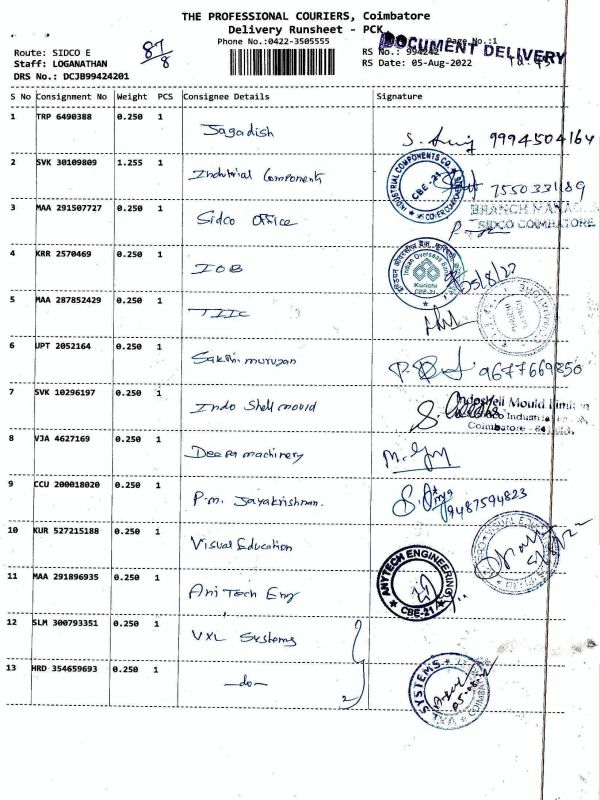 THE PROFESSIONAL COURIERS, Coimbatore
Delivery Runsheet - PCK
Phone No.:0422-3505555
Page No.:1
DOCUMENT DELIVERY
Route: SIDCO E
87/8
RS No.: 994242
Staff: LOGANATHAN
RS Date: 05-Aug-2022
DRS No.: DCJB99424201
S No Consignment No Weight PCS Consignee Details Signature
1 TRP 6490388 0.250 1 Jagadish 9994504164
2 SVK 30109809 1.255 1 Industrial Components 7550331189
INDUSTRIAL COMPONENTS CO CBE-21
3 MAA 291507727 0.250 1 Sidco Office
BRANCH MANAGER
SIDCO COIMBATORE
4 KRR 2570469 0.250 1 IOB 05/8/22
Indian Overseas Bank Kurichi CBE-21
5 MAA 287852429 0.250 1 TIIC
6 UPT 2052164 0.250 1 Sakthi murugan 9677669850
7 SVK 10296197 0.250 1 Indo Shell mould
Indoshell Mould Limited
Coimbatore - 641
8 VJA 4627169 0.250 1 Deepa machinery
9 CCU 200018020 0.250 1 P.m. Jayakrishnan. 9487594823
10 KUR 527215188 0.250 1 Visual Education
11 MAA 291896935 0.250 1 Ani Tech Eng
ANYTECH ENGINEERING CBE-21
12 SLM 300793351 0.250 1 VXL Systems
13 HRD 354659693 0.250 1 —do— 2
VXL SYSTEMS COIMBATORE